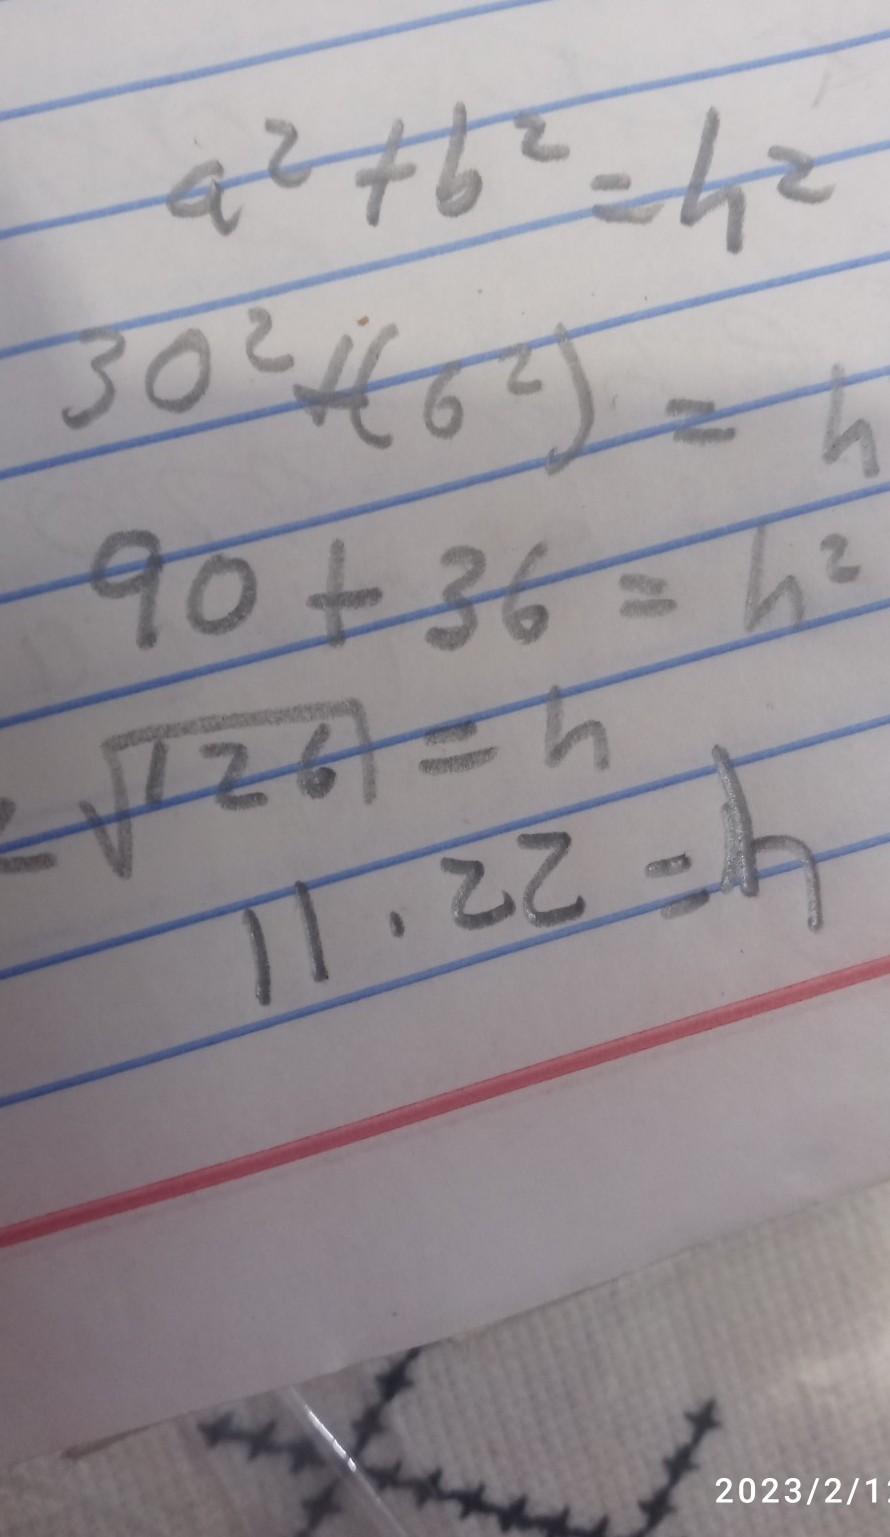 a² + b² = h²
30² + (6²) = h
90 + 36 = h²
√126 = h
11.22 = h
2023/2/12